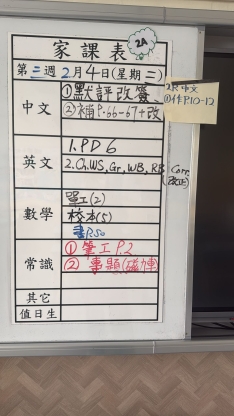 家課表
2A
第三週2月4日(星期二)
中文
①默評改簽
②補P.66-67+改
英文
1.PD6
2.Ch,WS,Gr,WB,RB
(Corr.
改正)
數學
校本(5)
書P.50
常識
① 筆工 P.2
② 專題(磁力車)
其它
值日生
中文
作P.10-12